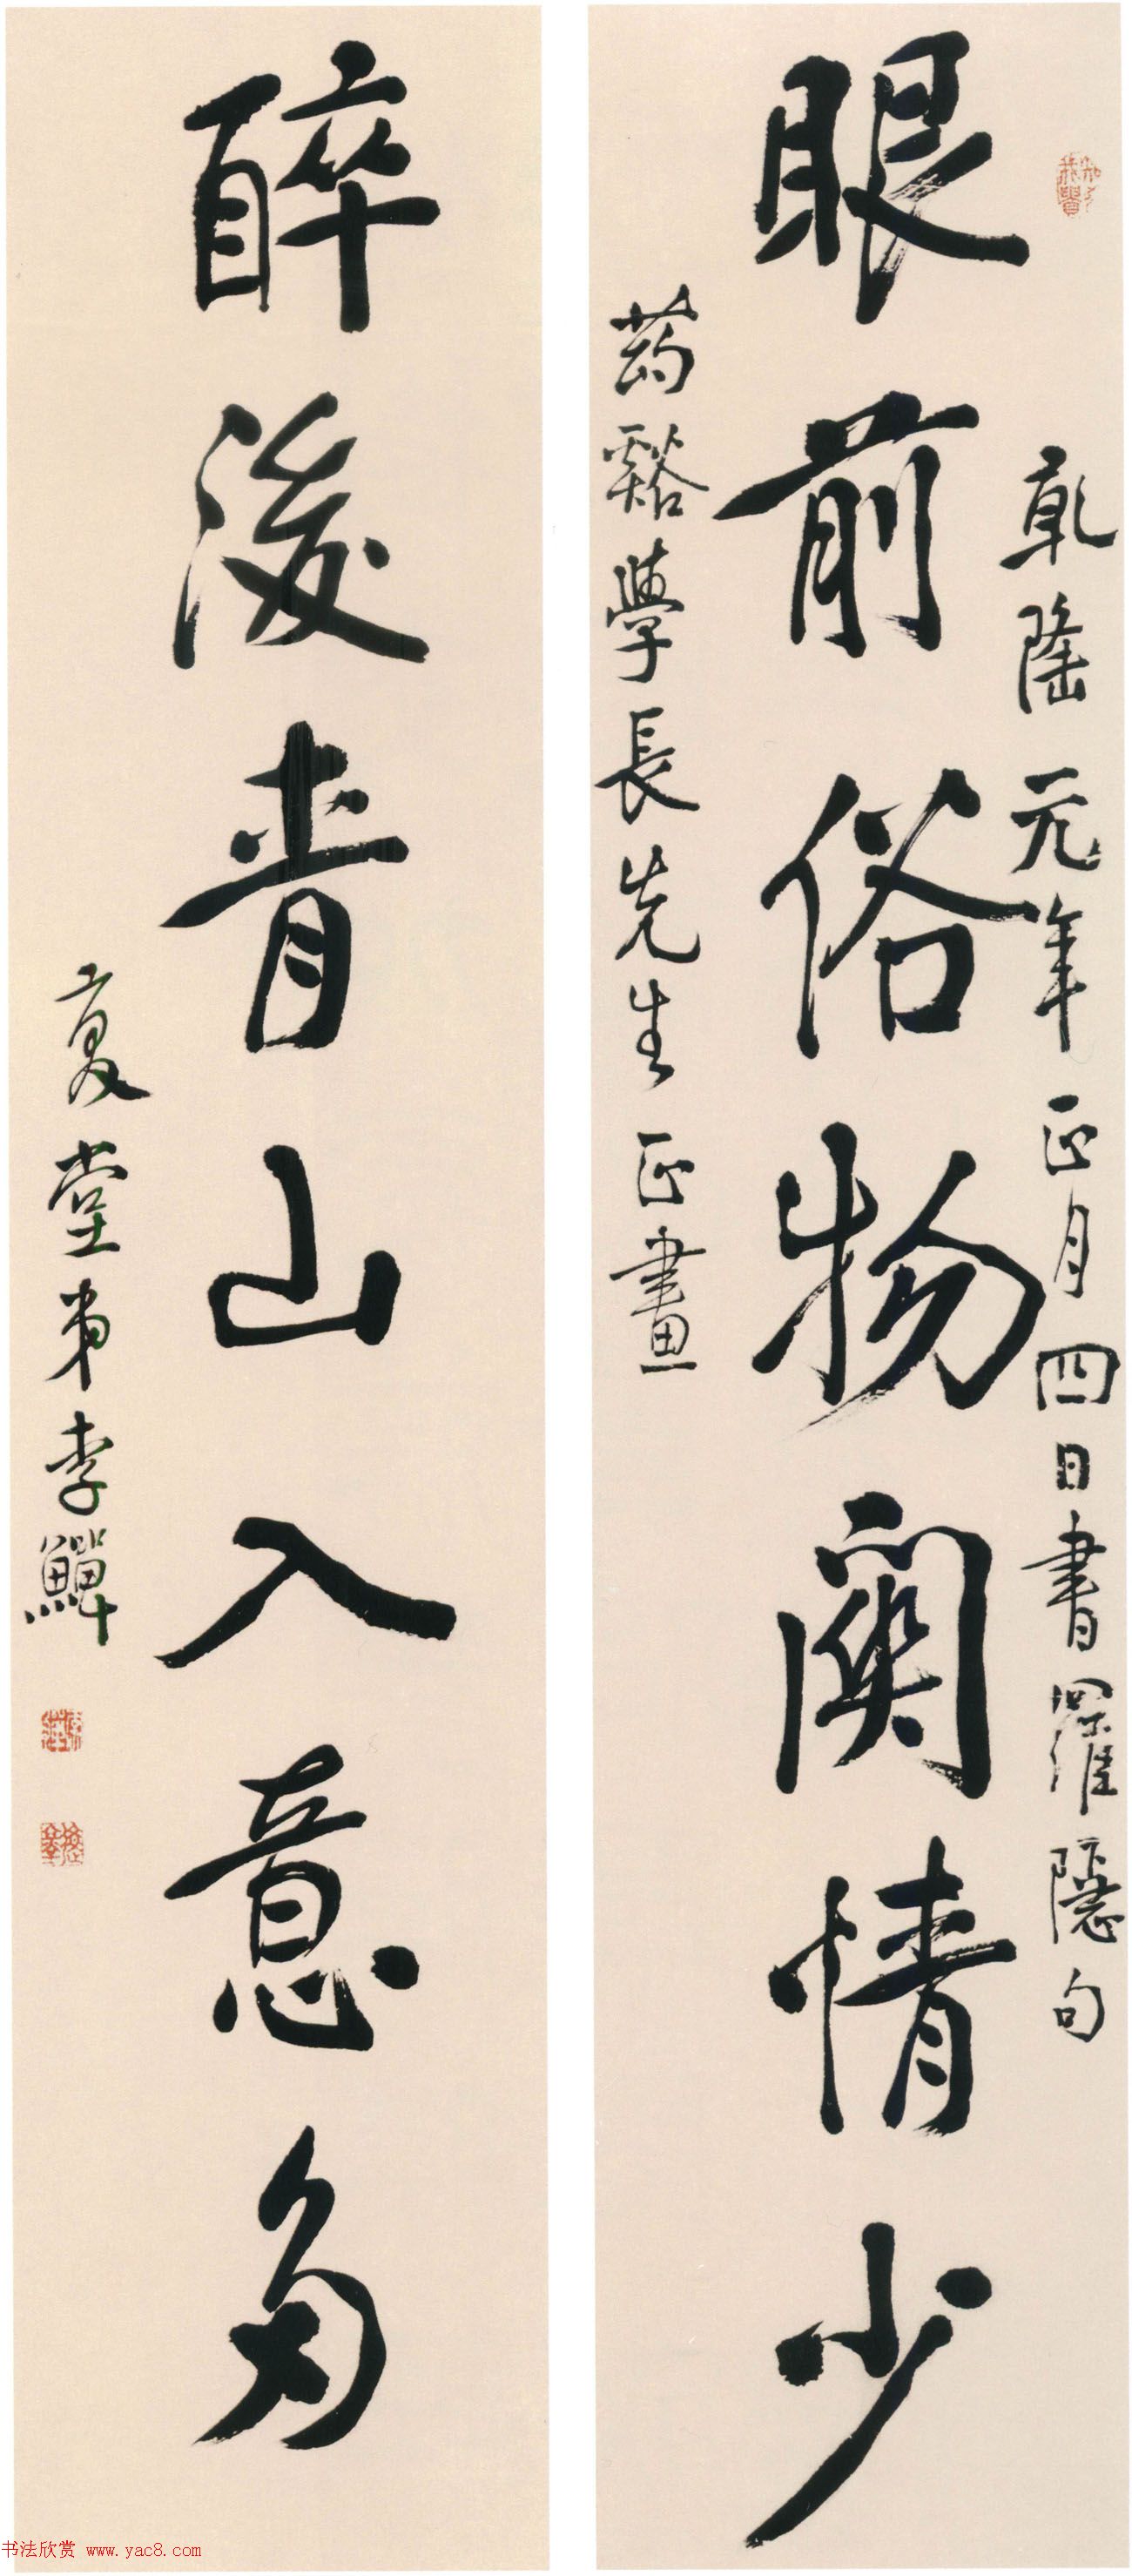 乾隆元年正月四日書羅隱句
眼前俗物関情少
药谿學長先生正畫
醉後青山入意多
復堂弟李鱓
书法欣赏 www.yac8.com